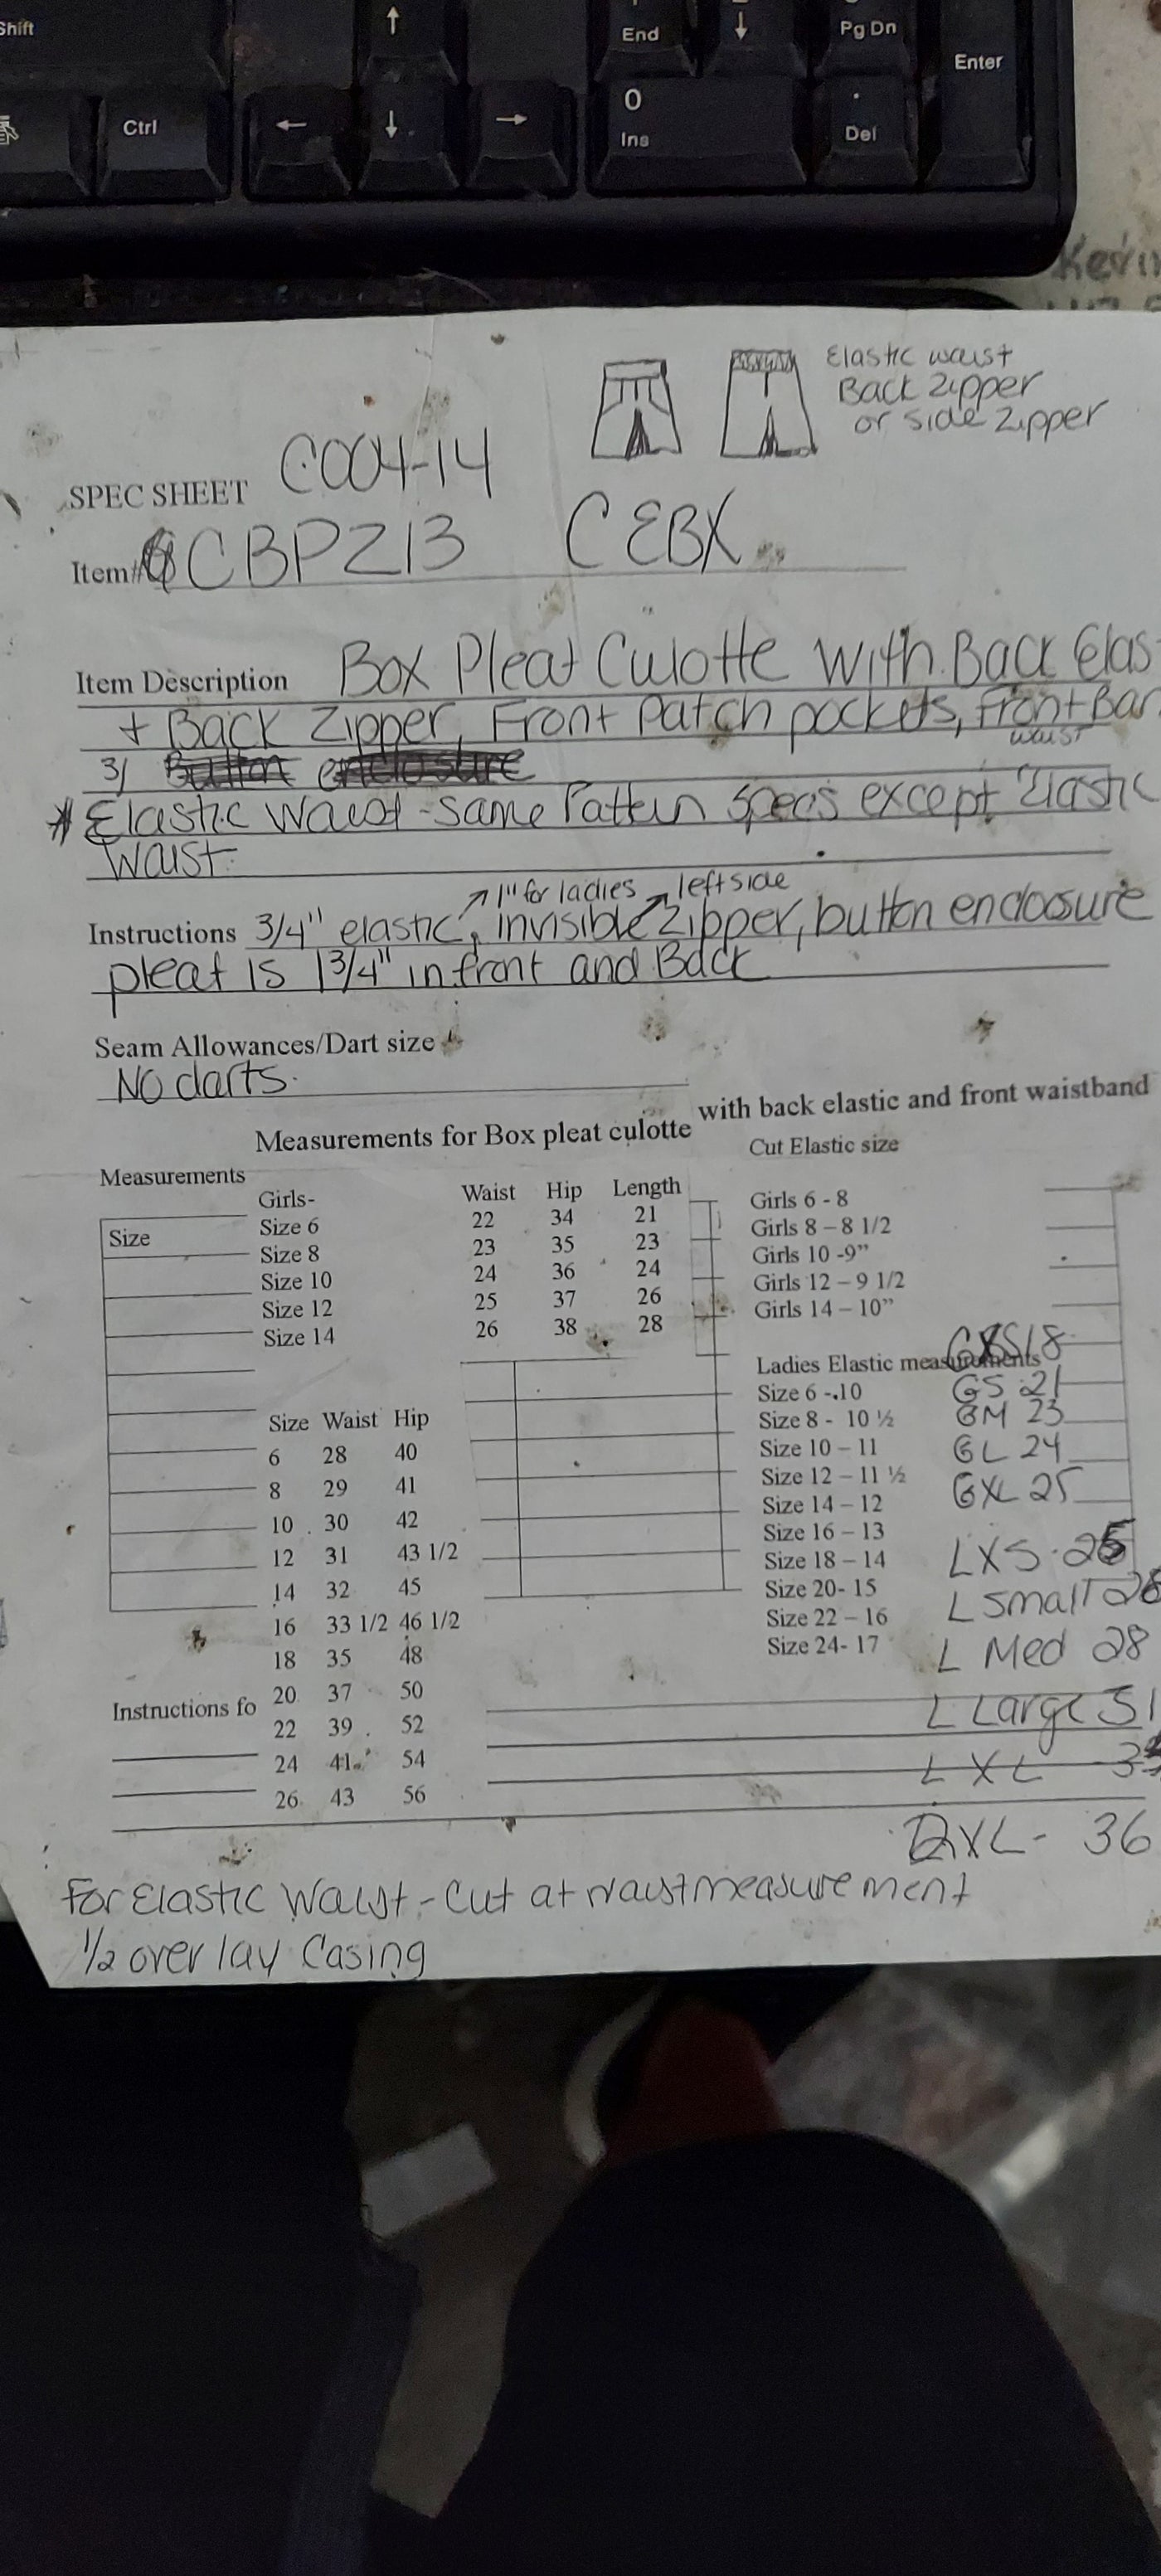 Shift
End
Pg Dn
Enter
Ctrl
0
Ins
.
Del
Kevin
Elastic waist
Back Zipper
or side Zipper
SPEC SHEET C004-14
Item# CBPZ13 CEBX
Item Description Box Pleat Culotte with Back Elas
+ Back Zipper, Front Patch pockets, Front Ban
waist
Button enclosure
* Elastic Waist - same Pattern specs except Elastic
Waist.
1" for ladies left side
Instructions 3/4" elastic, invisible Zipper, button enclosure
pleat is 1 3/4" in front and Back
Seam Allowances/Dart size
No darts.
Measurements for Box pleat culotte with back elastic and front waistband
Measurements
Size
Girls- Waist Hip Length
Size 6 22 34 21
Size 8 23 35 23
Size 10 24 36 24
Size 12 25 37 26
Size 14 26 38 28
Cut Elastic size
Girls 6 - 8
Girls 8 – 8 1/2
Girls 10 -9”
Girls 12 – 9 1/2
Girls 14 – 10”
Ladies Elastic measurements
Size 6 -.10
Size 8 - 10 ½
Size 10 – 11
Size 12 – 11 ½
Size 14 – 12
Size 16 – 13
Size 18 – 14
Size 20- 15
Size 22 – 16
Size 24- 17
GXS 18
GS 21
GM 23
GL 24
GXL 25
LXS
L Small
L Med 28
L Large 31
LXL
2XL - 36
Size Waist Hip
6 28 40
8 29 41
10 30 42
12 31 43 1/2
14 32 45
16 33 1/2 46 1/2
18 35 48
20 37 50
22 39 52
24 41 54
26 43 56
Instructions fo
For Elastic Waist - cut at waist measurement
1/2 over lay Casing